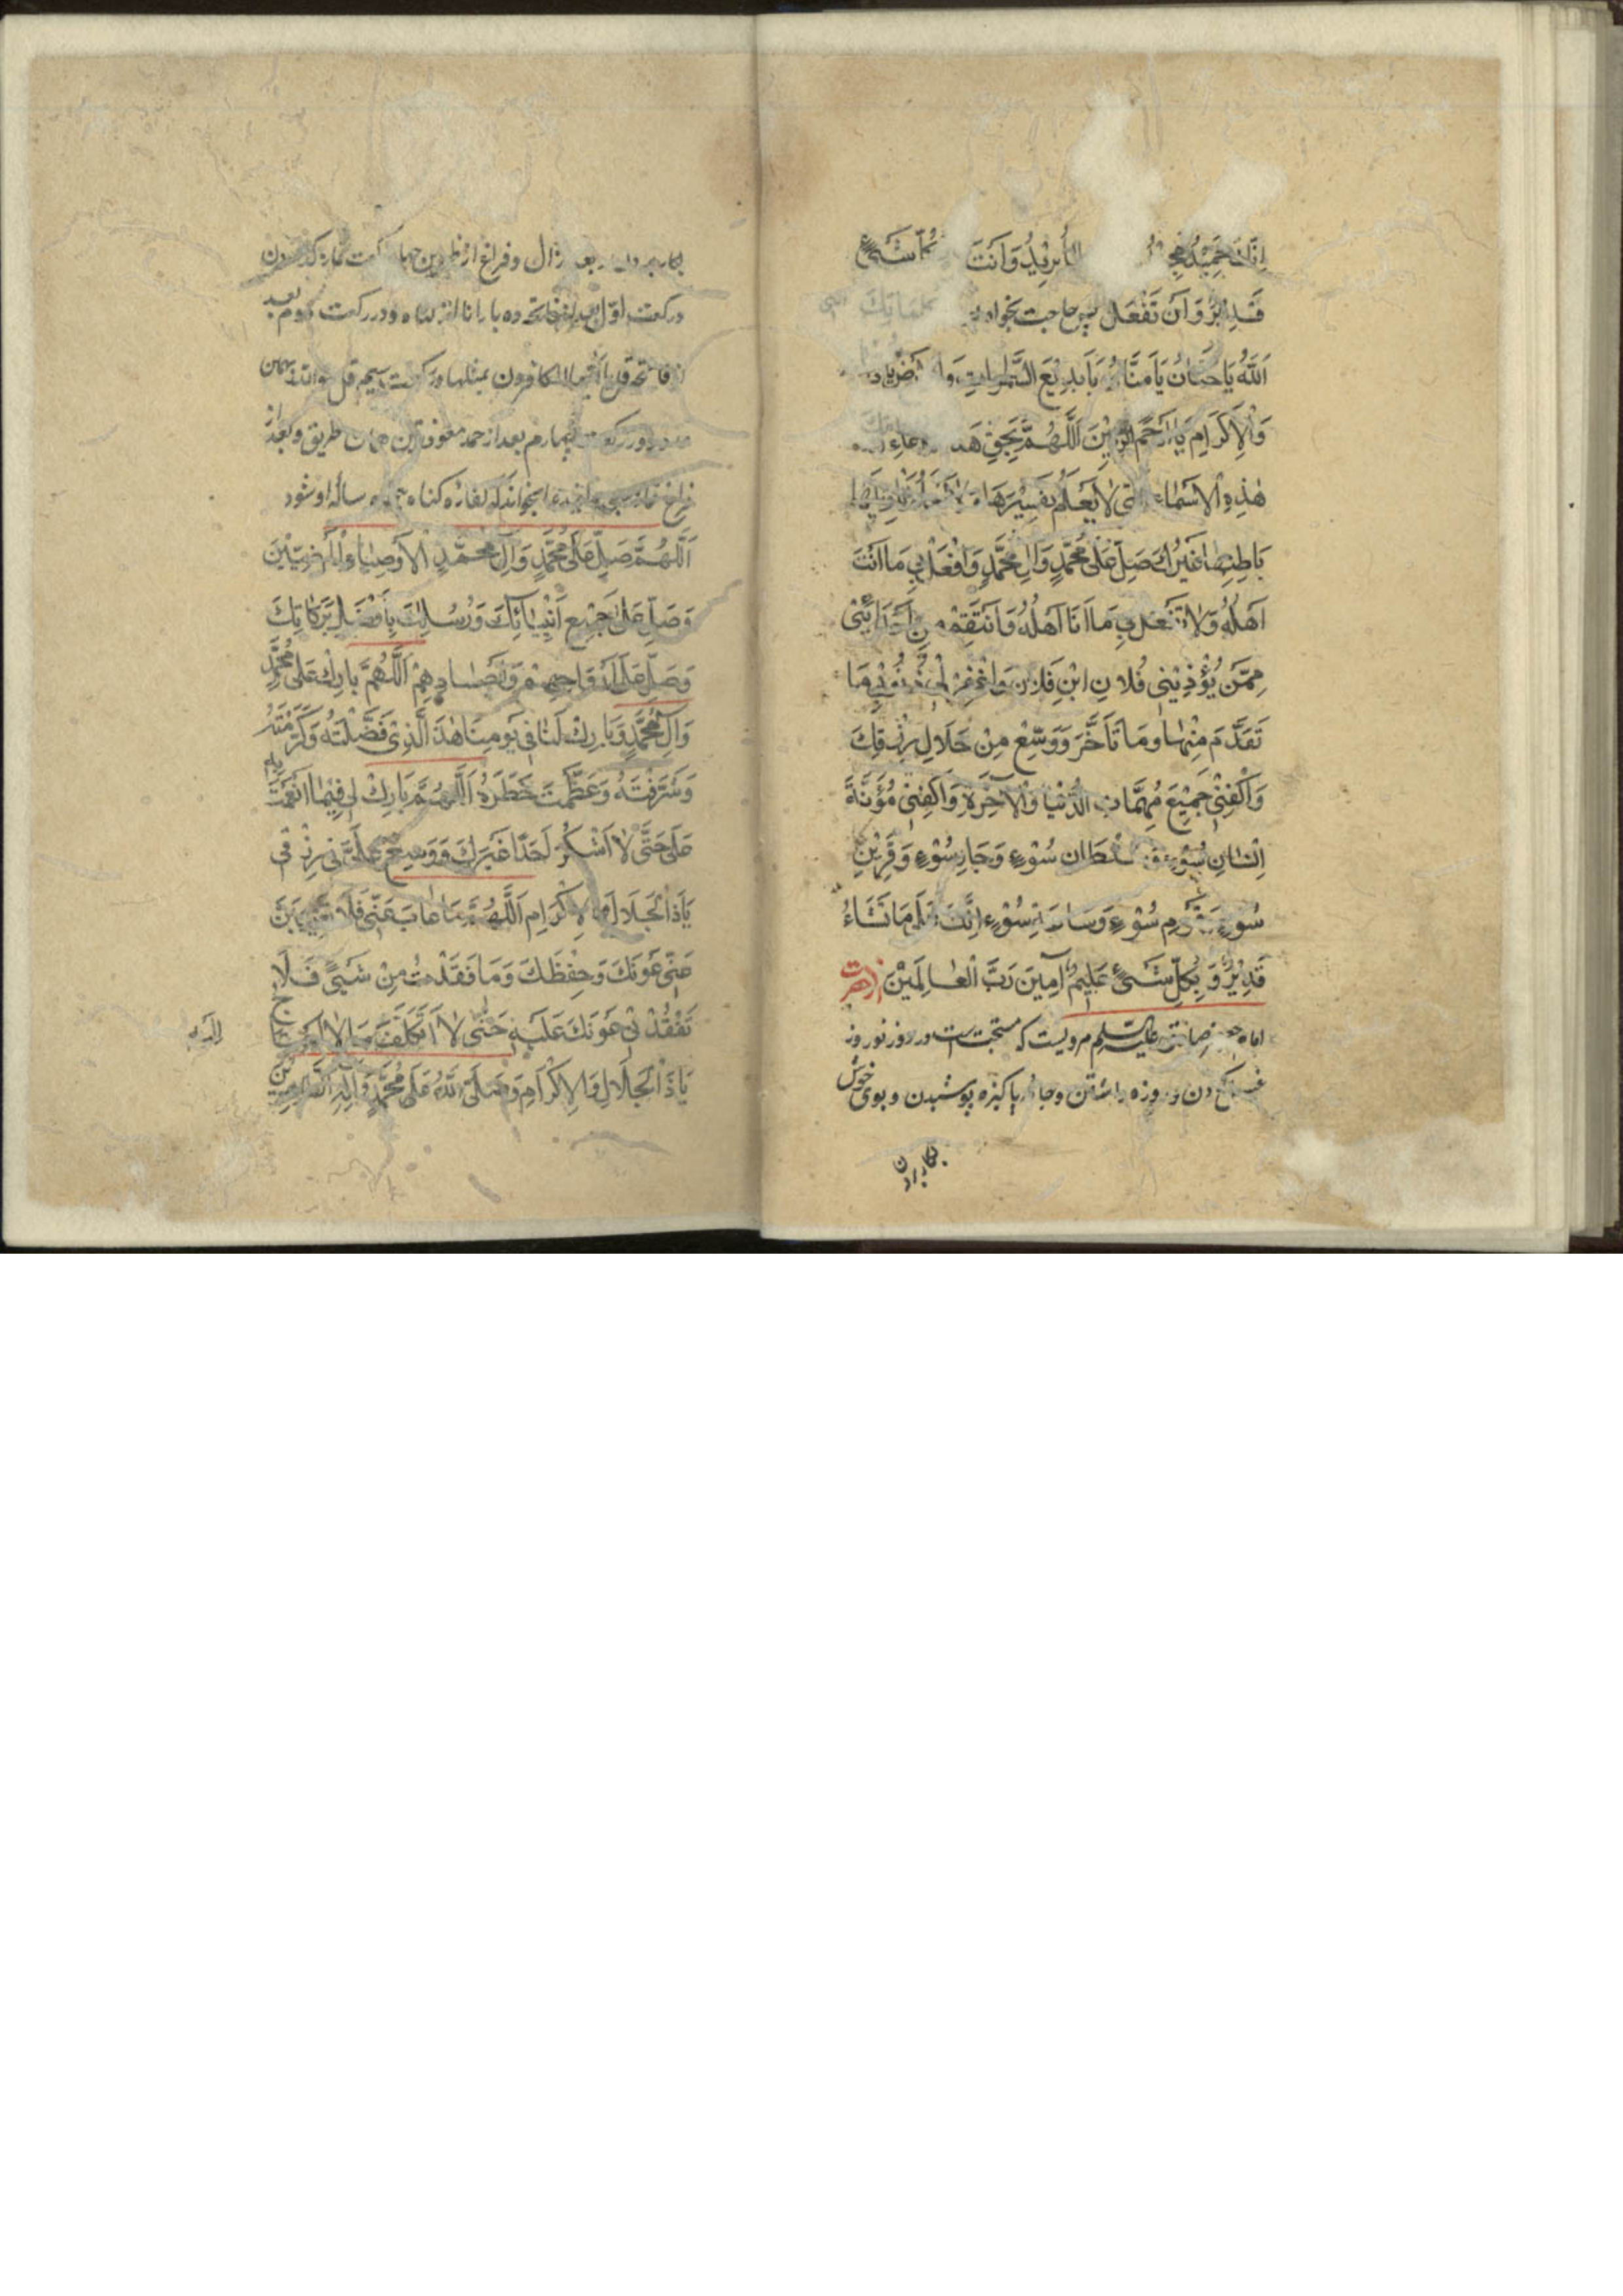 اِنَّكَ حَمِيْدٌ مَجِيْدٌ لِمَا تُرِيْدُ وَاَنْتَ كُلِّ شَيْءٍ
قَدِيْرٌ وَاَنْ تَفْعَلَ پس حاجت بخواهد
اَللّٰهُ يَا حَنَّانُ يَا مَنَّانُ يَا بَدِيْعَ السَّمٰوَاتِ وَالْاَرْضِ يَا ذَ
وَالْاِكْرَامِ يَا اَرْحَمَ الرَّاحِمِيْنَ اَللّٰهُمَّ بِحَقِّ هٰذَا الدُّعَاءِ
هٰذِهِ الْاَسْمَاءِ الَّتِى لَا يَعْلَمُ تَفْسِيْرَهَا وَلَا يَعْلَمُ
بَاطِنِهَا غَيْرُكَ صَلِّ عَلٰى مُحَمَّدٍ وَاٰلِ مُحَمَّدٍ وَافْعَلْ بِى مَا اَنْتَ
اَهْلُهُ وَلَا تَفْعَلْ بِى مَا اَنَا اَهْلُهُ وَانْتَقِمْ مِنْ اَعْدَائِىْ
مِمَّنْ يُؤْذِيْنِى فُلَانِ ابْنِ فُلَانٍ وَاغْفِرْ لِىْ ذُنُوْبِى مَا
تَقَدَّمَ مِنْهَا وَمَا تَاَخَّرَ وَوَسِّعْ مِنْ حَلَالِ رِزْقِكَ
وَاكْفِنِىْ جَمِيْعَ مُهِمَّاتِ الدُّنْيَا وَالْاٰخِرَةِ وَاكْفِنِىْ مَؤُنَةَ
اِنْسَانِ سُوْءٍ وَسُلْطَانِ سُوْءٍ وَجَارِ سُوْءٍ وَقَرِيْنِ
سُوْءٍ وَيَوْمِ سُوْءٍ وَسَاعَةِ سُوْءٍ اِنَّكَ عَلٰى مَا تَشَاءُ
قَدِيْرٌ وَبِكُلِّ شَىْءٍ عَلِيْمٌ اٰمِيْنَ رَبَّ الْعَالَمِيْنَ از حضرت
امام جعفر صادق عليه السلم مرويست كه مستحبّ است در روز نوروز
غسل كردن و روزه داشتن و جامهٔ پاكيزه پوشيدن و بوى خوش
بكار بردن
بكار بردن و بعد زوال و فراغ از ظهرين چهار ركعت نماز كردن
در ركعت اوّل بعد از فاتحه ده بار انا انزلناه و در ركعت دوم بعد
از فاتحه قل يا ايها الكافرون بمثلها در ركعت سيم قل هو الله بهمان
عدد و در ركعت چهارم بعد از حمد معوذتين بهمان طريق و بعد از
فراغ نماز دعا بخواند كه كفاره كناه ساله او شود
اَللّٰهُمَّ صَلِّ عَلٰى مُحَمَّدٍ وَاٰلِ مُحَمَّدٍ الْاَوْصِيَاءِ الْمَرْضِيِّيْنَ
وَصَلِّ عَلٰى جَمِيْعِ اَنْبِيَائِكَ وَرُسُلِكَ بِاَفْضَلِ بَرَكَاتِكَ
وَصَلِّ عَلٰى اَرْوَاحِهِمْ وَاَجْسَادِهِمْ اَللّٰهُمَّ بَارِكْ عَلٰى مُحَمَّدٍ
وَاٰلِ مُحَمَّدٍ وَبَارِكْ لَنَا فِى يَوْمِنَا هٰذَا الَّذِىْ فَضَّلْتَهُ وَكَرَّمْتَهُ
وَشَرَّفْتَهُ وَعَظَّمْتَ خَطَرَهُ اَللّٰهُمَّ بَارِكْ لِى فِيْمَا اَنْعَمْتَ بِهِ
عَلَىَّ حَتّٰى لَا اَشْكُرَ اَحَدًا غَيْرَكَ وَوَسِّعْ عَلَىَّ فِى رِزْقِى
يَا ذَا الْجَلَالِ وَالْاِكْرَامِ اَللّٰهُمَّ مَا غَابَ عَنِّى فَلَا يَغِيْبَنَّ
عَنِّى عَوْنُكَ وَحِفْظُكَ وَمَا فَقَدْتُ مِنْ شَيْىءٍ فَلَا
تُفْقِدْنِى عَوْنَكَ عَلَيْهِ حَتّٰى لَا اَتَكَلَّفَ مَا لَا اَحْتَاجُ
اليه
يَا ذَا الْجَلَالِ وَالْاِكْرَامِ وَصَلَّى اللّٰهُ عَلٰى مُحَمَّدٍ وَاٰلِهِ الطَّاهِرِيْنَ